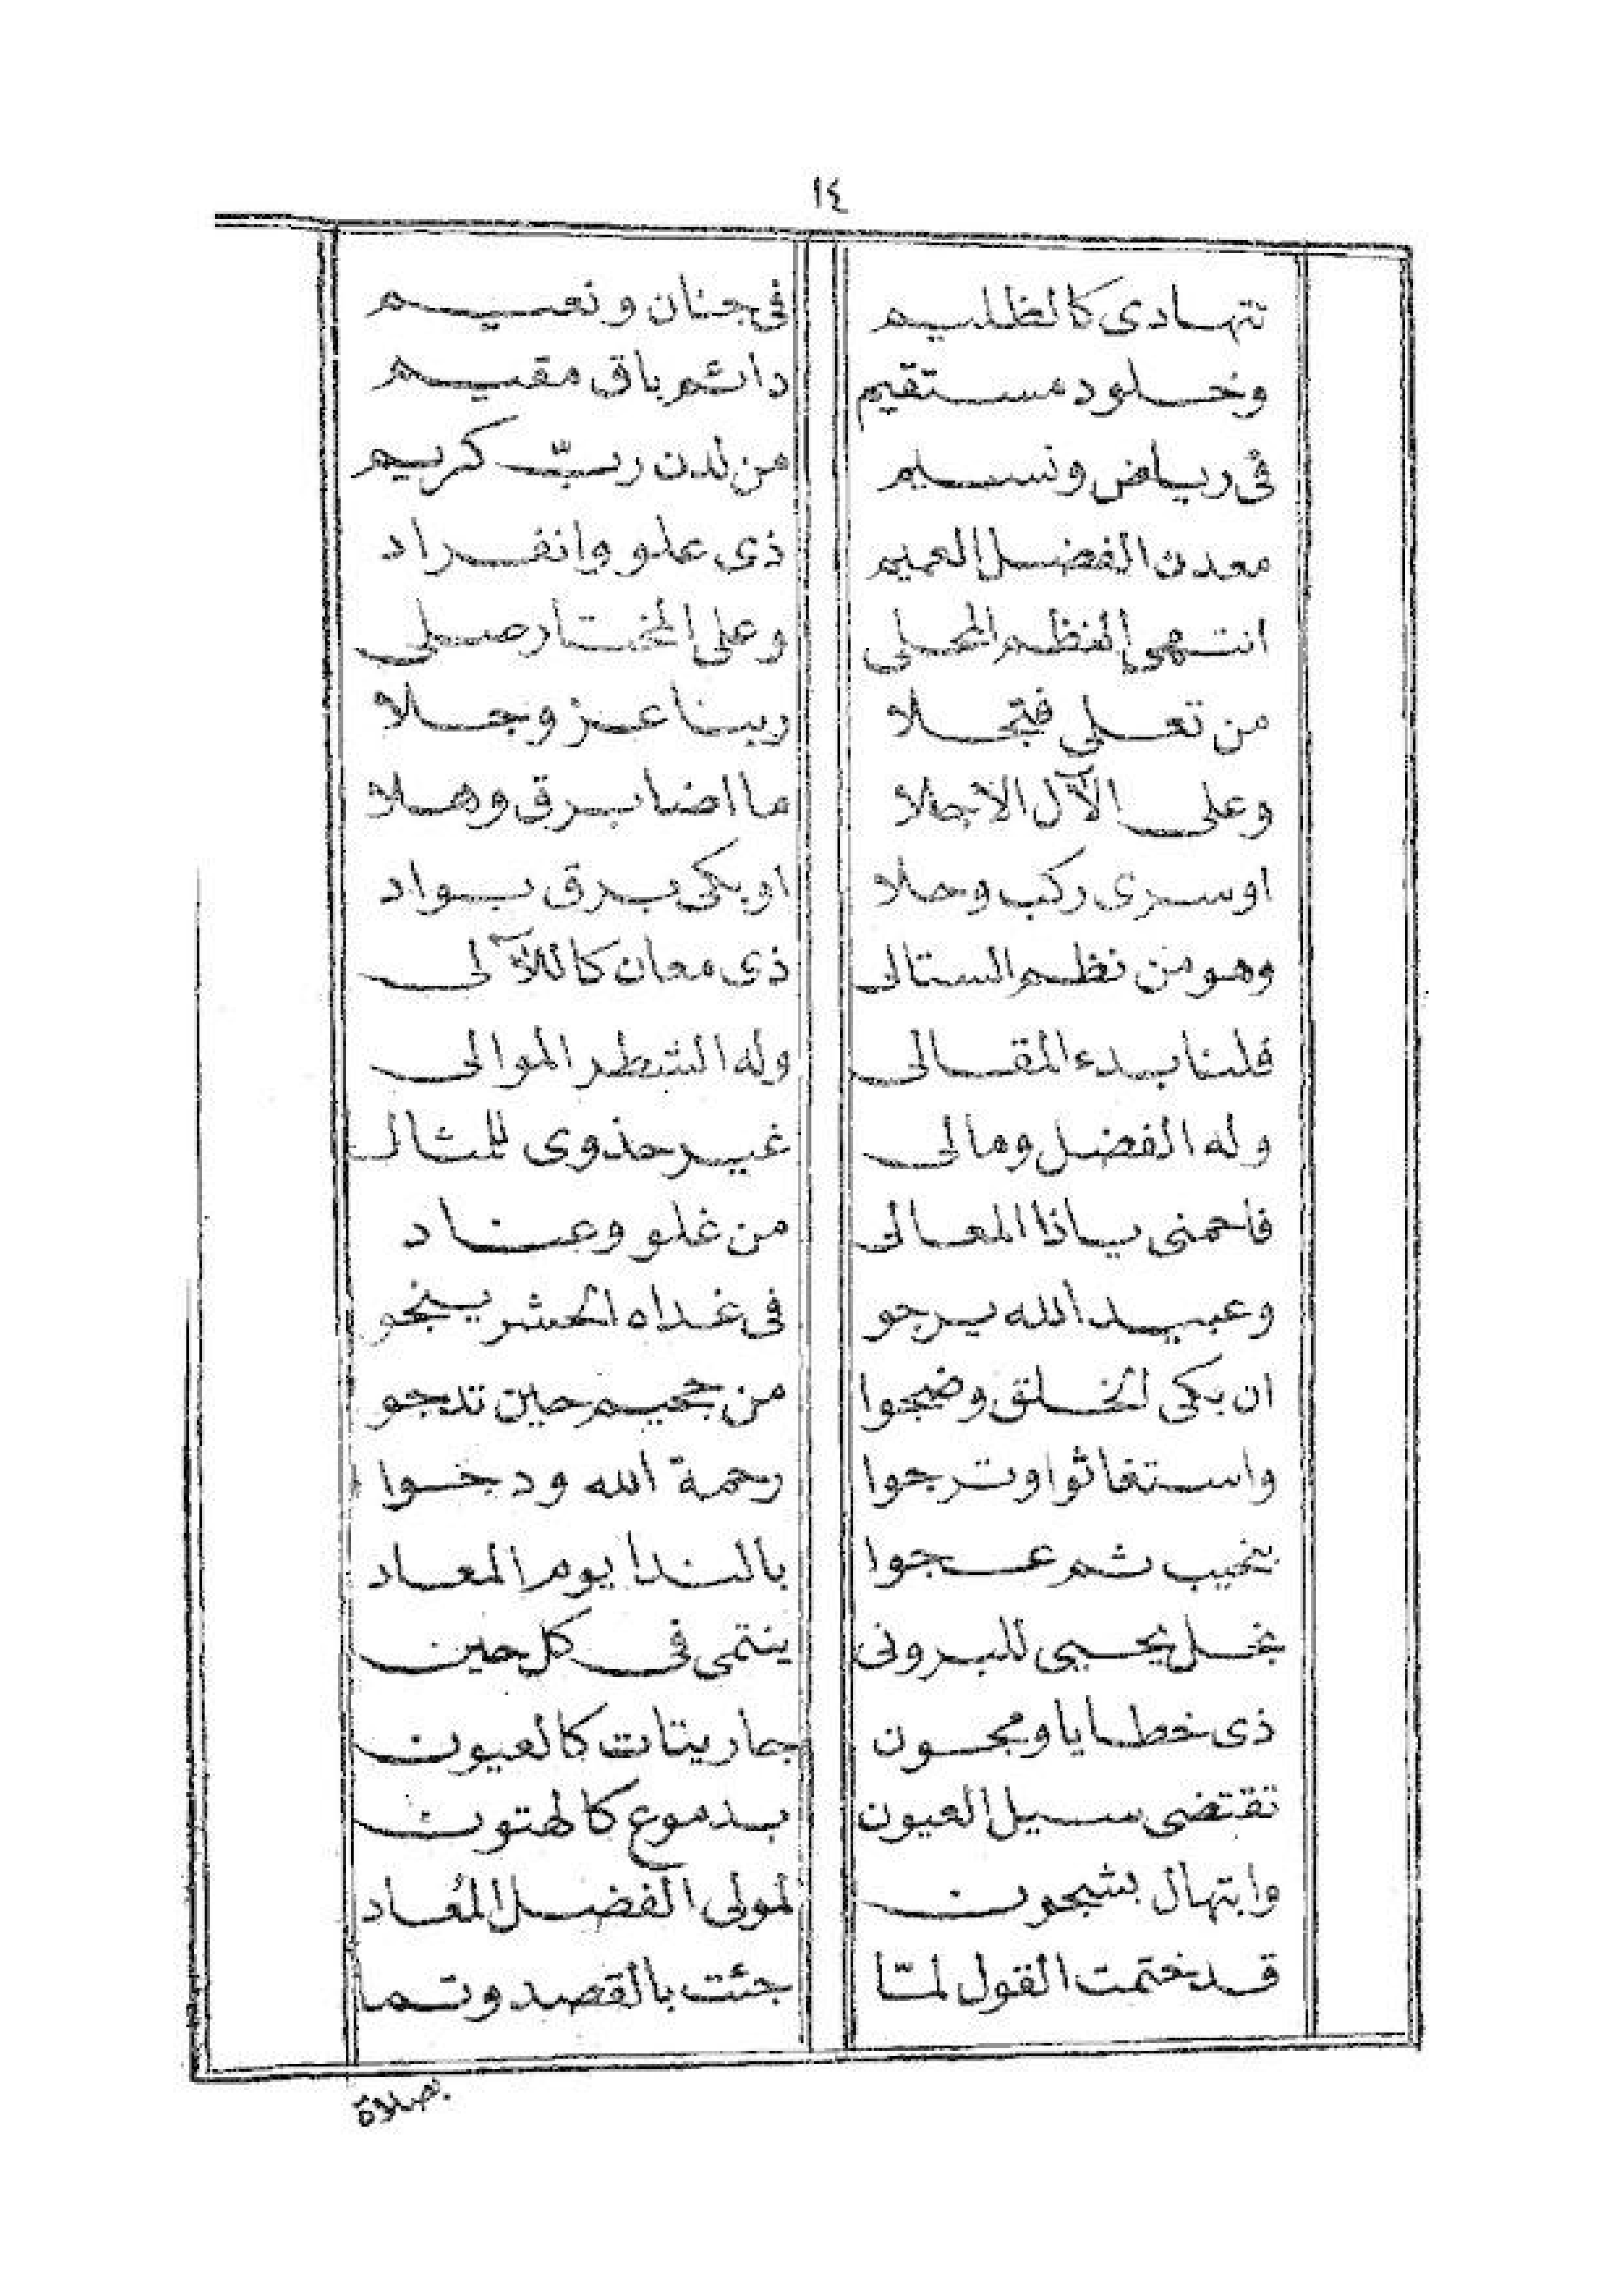 ١٤
تتهادى كالظليم في جنان ونعيم
وخلود مستقيم دائم باق مقيم
في رياض ونسيم من لدن ربّ كريم
معدن الفضل العميم ذى علو وانفراد
انتهى النظم المحلى وعلى المختار صلى
من تعلى فتجلا ربنا عز وجلا
وعلى الآل الاجلا ما اضا برق وهلا
او سرى ركب وحلا او بكى برق بواد
وهو من نظم الستالى ذى معان كاللآلى
فلنا بدء المقالى وله الشطر الموالى
وله الفضل ومالى غير حذوى للمثال
فاحمنى ياذا المعالى من غلو وعناد
وعبيد الله يرجو فى غداه الحشر ينجو
ان بكى الخلق وضجوا من جحيم حين تدجو
واستغاثوا وترجوا رحمة الله ودخوا
بنحيب ثم عجوا بالندا يوم المعاد
نجل يحيى للبرونى ينتمى فى كل حين
ذى خطايا ومجون جاريتات كالعيون
تقتضى سيل العيون بدموع كالهتون
وابتهال بشجون لمولى الفضل المُعاد
قد ختمت القول لمّا جئت بالقصد وتما
صلاة